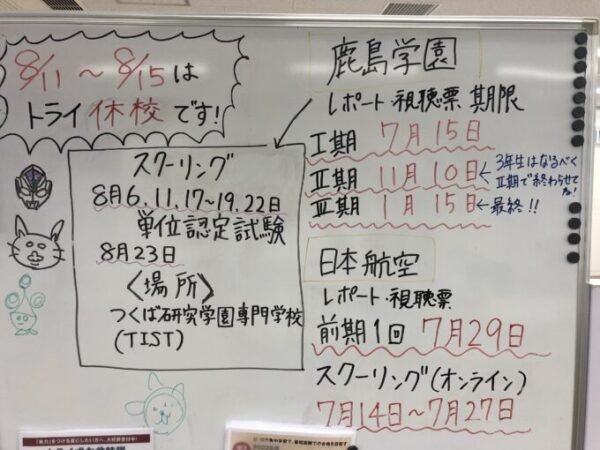 8/11～8/15は
トライ休校です!
スクーリング
8月6.11.17～19.22日
単位認定試験
8月23日
〈場所〉
つくば研究学園専門学校
(TIST)
鹿島学園
レポート・視聴票 期限
Ⅰ期 7月15日
Ⅱ期 11月10日
3年生はなるべく
Ⅱ期で終わらせてね!
Ⅲ期 1月15日
最終!!
日本航空
レポート・視聴票
前期1回 7月29日
スクーリング(オンライン)
7月14日～7月27日